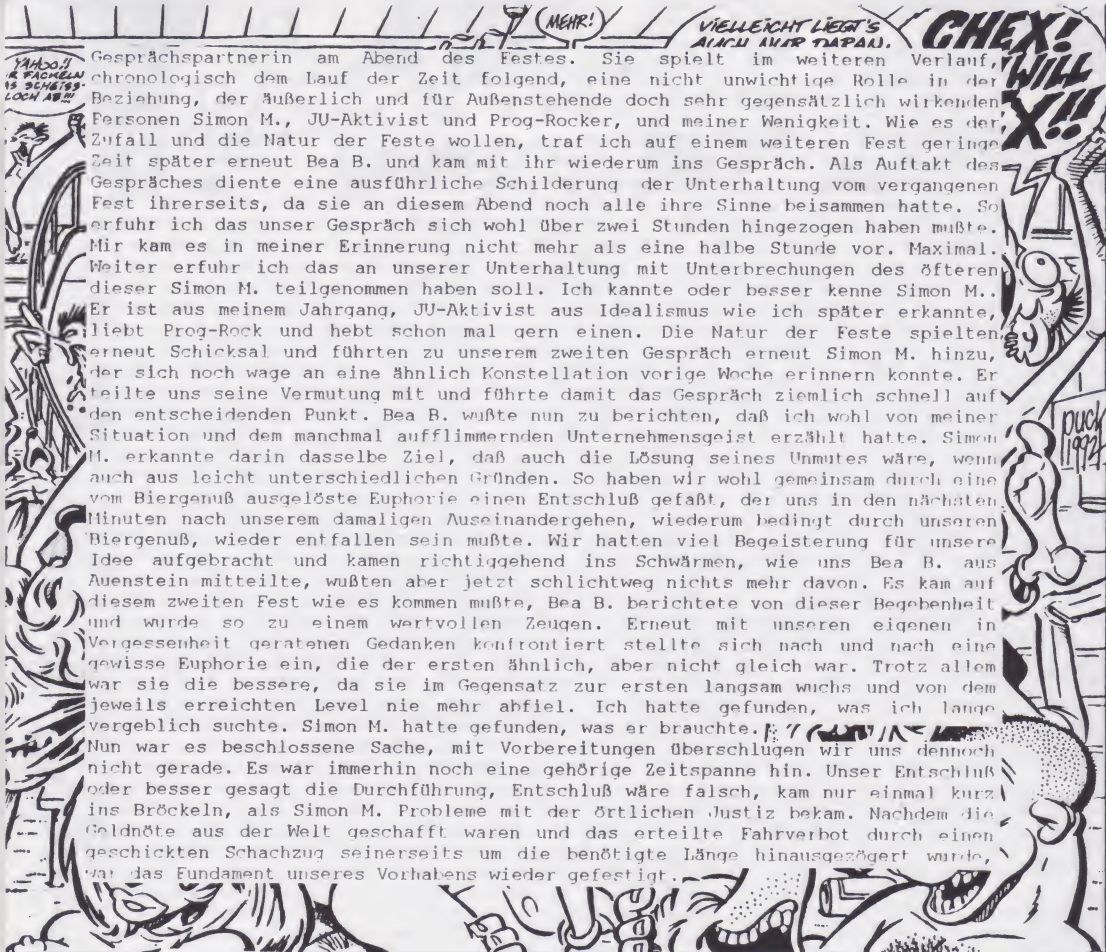 (MEHR!)
VIELLEICHT LIEGT'S
AUCH NUR DARAN,
CHEX!
WILL
X!!
YAHOO!!
FACKELN
SCHEISS-
LOCH AB!!!
Gesprächspartnerin am Abend des Festes. Sie spielt im weiteren Verlauf,
chronologisch dem Lauf der Zeit folgend, eine nicht unwichtige Rolle in der
Beziehung, der äußerlich und für Außenstehende doch sehr gegensätzlich wirkenden
Personen Simon M., JU-Aktivist und Prog-Rocker, und meiner Wenigkeit. Wie es der
Zufall und die Natur der Feste wollen, traf ich auf einem weiteren Fest geringe
Zeit später erneut Bea B. und kam mit ihr wiederum ins Gespräch. Als Auftakt des
Gespräches diente eine ausführliche Schilderung der Unterhaltung vom vergangenen
Fest ihrerseits, da sie an diesem Abend noch alle ihre Sinne beisammen hatte. So
erfuhr ich das unser Gespräch sich wohl über zwei Stunden hingezogen haben mußte.
Mir kam es in meiner Erinnerung nicht mehr als eine halbe Stunde vor. Maximal.
Weiter erfuhr ich das an unserer Unterhaltung mit Unterbrechungen des öfteren
dieser Simon M. teilgenommen haben soll. Ich kannte oder besser kenne Simon M..
Er ist aus meinem Jahrgang, JU-Aktivist aus Idealismus wie ich später erkannte,
liebt Prog-Rock und hebt schon mal gern einen. Die Natur der Feste spielten
erneut Schicksal und führten zu unserem zweiten Gespräch erneut Simon M. hinzu,
der sich noch wage an eine ähnlich Konstellation vorige Woche erinnern konnte. Er
teilte uns seine Vermutung mit und führte damit das Gespräch ziemlich schnell auf
den entscheidenden Punkt. Bea B. wußte nun zu berichten, daß ich wohl von meiner
Situation und dem manchmal aufflimmernden Unternehmensgeist erzählt hatte. Simon
M. erkannte darin dasselbe Ziel, daß auch die Lösung seines Unmutes wäre, wenn
auch aus leicht unterschiedlichen Gründen. So haben wir wohl gemeinsam durch eine
vom Biergenuß ausgelöste Euphorie einen Entschluß gefaßt, der uns in den nächsten
Minuten nach unserem damaligen Auseinandergehen, wiederum bedingt durch unseren
Biergenuß, wieder entfallen sein mußte. Wir hatten viel Begeisterung für unsere
Idee aufgebracht und kamen richtiggehend ins Schwärmen, wie uns Bea B. aus
Auenstein mitteilte, wußten aber jetzt schlichtweg nichts mehr davon. Es kam auf
diesem zweiten Fest wie es kommen mußte, Bea B. berichtete von dieser Begebenheit
und wurde so zu einem wertvollen Zeugen. Erneut mit unseren eigenen in
Vergessenheit geratenen Gedanken konfrontiert stellte sich nach und nach eine
gewisse Euphorie ein, die der ersten ähnlich, aber nicht gleich war. Trotz allem
war sie die bessere, da sie im Gegensatz zur ersten langsam wuchs und von dem
jeweils erreichten Level nie mehr abfiel. Ich hatte gefunden, was ich lange
vergeblich suchte. Simon M. hatte gefunden, was er brauchte.
Nun war es beschlossene Sache, mit Vorbereitungen überschlugen wir uns dennoch
nicht gerade. Es war immerhin noch eine gehörige Zeitspanne hin. Unser Entschluß
oder besser gesagt die Durchführung, Entschluß wäre falsch, kam nur einmal kurz
ins Bröckeln, als Simon M. Probleme mit der örtlichen Justiz bekam. Nachdem die
Geldnöte aus der Welt geschafft waren und das erteilte Fahrverbot durch einen
geschickten Schachzug seinerseits um die benötigte Länge hinausgezögert wurde,
war das Fundament unseres Vorhabens wieder gefestigt.
puck
1992